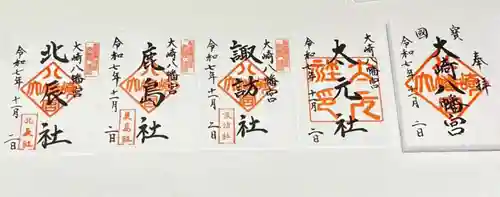 國寳
奉拝
大崎八幡宮
令和七年十一月二日
大崎八幡宮
太元社
令和七年十一月二日
大崎八幡宮
諏訪社
令和七年十一月二日
諏訪社
大崎八幡宮
鹿島社
令和七年十一月二日
鹿島社
大崎八幡宮
北辰社
令和七年十一月二日
北辰社